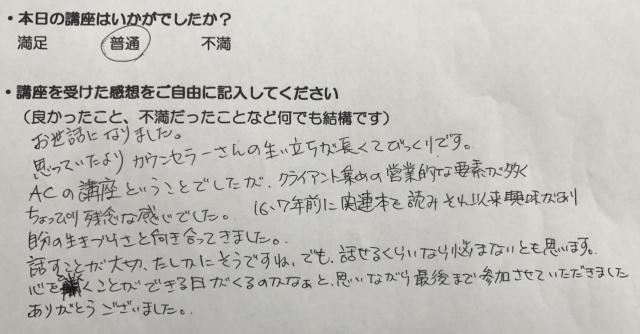 ・本日の講座はいかがでしたか？
満足 普通 不満
・講座を受けた感想をご自由に記入してください
（良かったこと、不満だったことなど何でも結構です）
お世話になりました。
思っていたよりカウンセラーさんの生い立ちが長くてびっくりです。
ACの講座ということでしたが、クライアント集めの営業的な要素が多く
ちょっぴり残念な感じでした。16、7年前に関連本を読みそれ以来興味があり
自分の生きづらさと向き合ってきました。
話すことが大切、たしかにそうですね、でも、話せるくらいなら悩まないとも思います。
心を開くことができる日がくるのかなぁと、思いながら最後まで参加させていただきました
ありがとうございました。